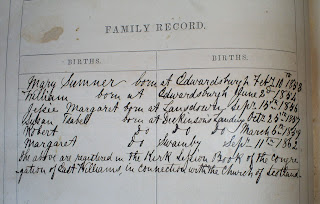 FAMILY RECORD.
BIRTHS.
BIRTHS.
Mary Sumner born at Edwardsburgh Feb. 10th
William born at Edwardsburgh June 2d
Jessie Margaret born at Lansdown Sept. 15th
Susan Isabel born at Dickinsons Landing Oct. 25th 1857
Robert do do do March 6th 1859
Margaret do Swainby Sept. 11th 1862
The above are registered in the Kirk Session Book of the congre-
gation of East Williams, in connection with the Church of Scotland